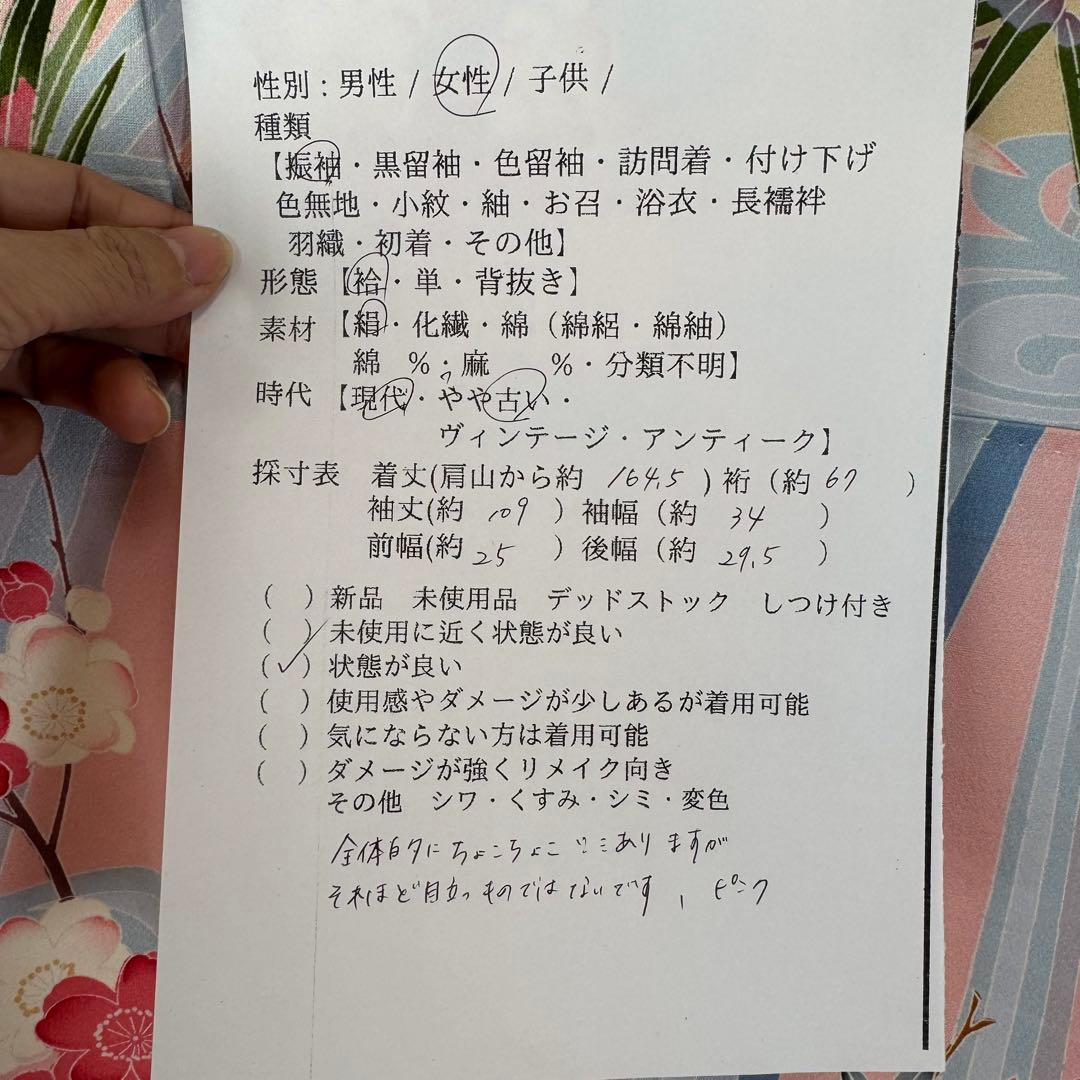 性別：男性 / 女性 / 子供 /
種類
【振袖・黒留袖・色留袖・訪問着・付け下げ
色無地・小紋・紬・お召・浴衣・長襦袢
羽織・初着・その他】
形態【袷・単・背抜き】
素材【絹・化繊・綿（綿絽・綿紬）
綿 %・麻 %・分類不明】
時代【現代・やや古い・
ヴィンテージ・アンティーク】
採寸表 着丈(肩山から約 164.5 ) 裄（約 67 ）
袖丈(約 109 ）袖幅（約 34 ）
前幅(約 25 ）後幅（約 29.5 ）
( ) 新品 未使用品 デッドストック しつけ付き
( ) 未使用に近く状態が良い
(✓) 状態が良い
( ) 使用感やダメージが少しあるが着用可能
( ) 気にならない方は着用可能
( ) ダメージが強くリメイク向き
その他 シワ・くすみ・シミ・変色
全体的にちょこちょこシミありますが
それほど目立つものではないです、ピンク